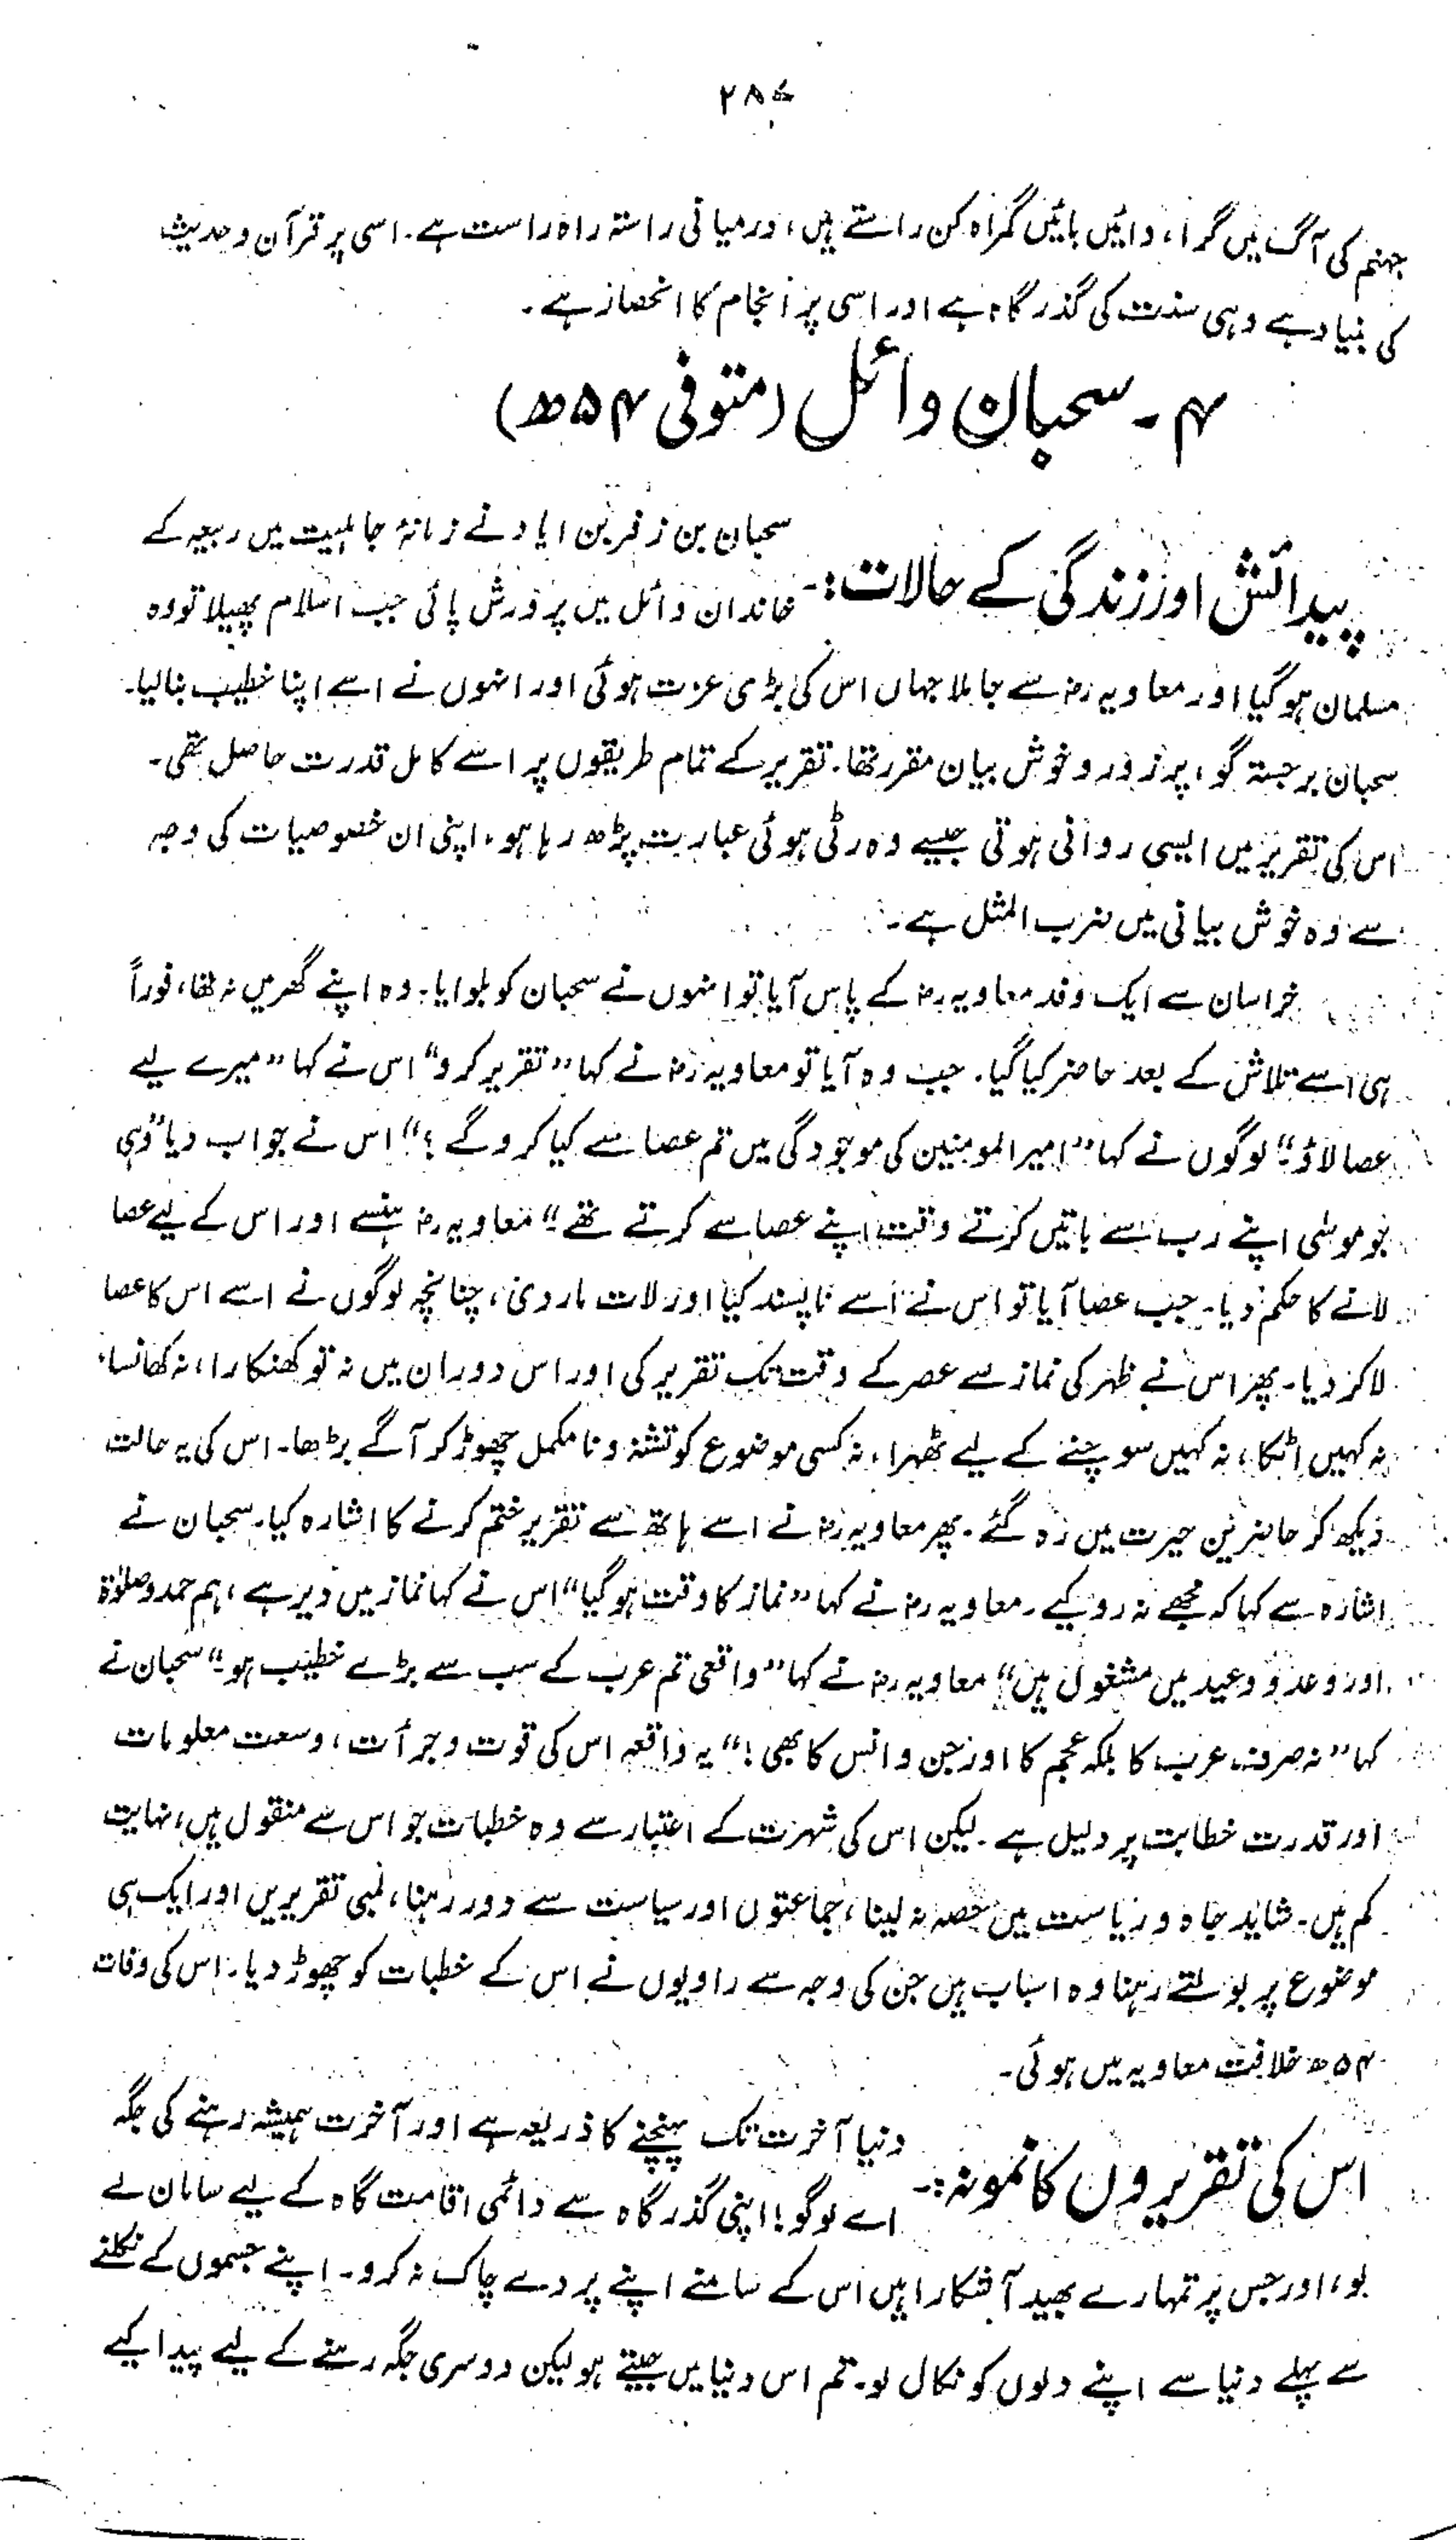 ۲۸۷
جہنم کی آگ میں گرا، دائیں بائیں گمراہ کن راستے ہیں، درمیانی راستہ راہ راست ہے۔ اسی پر قرآن و حدیث
کی بنیاد ہے وہی سنت کی گذر گاہ ہے اور اسی پر انجام کا انحصار ہے۔
۴۔ سحبان وائل (متوفی ۵۴ھ)
پیدائش اور زندگی کے حالات:۔ سحبان بن زفر بن ایاد نے زمانۂ جاہلیت میں ربیعہ کے
خاندان وائل میں پرورش پائی جب اسلام پھیلا تو وہ
مسلمان ہو گیا اور معاویہ رضہ سے جا ملا جہاں اس کی بڑی عزت ہوئی اور انہوں نے اسے اپنا خطیب بنا لیا۔
سحبان برجستہ گو، پرزور و خوش بیان مقرر تھا۔ تقریر کے تمام طریقوں پر اسے کامل قدرت حاصل تھی۔
اس کی تقریر میں ایسی روانی ہوتی جیسے وہ رٹی ہوئی عبارت پڑھ رہا ہو، اپنی ان خصوصیات کی وجہ
سے وہ خوش بیانی میں ضرب المثل ہے۔
خراسان سے ایک وفد معاویہ رضہ کے پاس آیا تو انہوں نے سحبان کو بلوایا۔ وہ اپنے گھر میں نہ تھا، فوراً
ہی اسے تلاش کے بعد حاضر کیا گیا۔ جب وہ آیا تو معاویہ رضہ نے کہا ”تقریر کرو“ اس نے کہا ”میرے لیے
عصا لاؤ۔“ لوگوں نے کہا ”امیر المومنین کی موجودگی میں تم عصا سے کیا کرو گے ؟“ اس نے جواب دیا ”وہی
جو موسٰی اپنے رب سے باتیں کرتے وقت اپنے عصا سے کرتے تھے“ معاویہ رضہ ہنسے اور اس کے لیے عصا
لانے کا حکم دیا۔ جب عصا آیا تو اس نے اسے ناپسند کیا اور لات مار دی، چنانچہ لوگوں نے اسے اس کا عصا
لا کر دیا۔ پھر اس نے ظہر کی نماز سے عصر کے وقت تک تقریر کی اور اس دوران میں نہ تو کھنکارا، نہ کھانسا،
نہ کہیں اٹکا، نہ کہیں سوچنے کے لیے ٹھہرا، نہ کسی موضوع کو تشنہ و نامکمل چھوڑ کر آگے بڑھا۔ اس کی یہ حالت
دیکھ کر حاضرین حیرت میں رہ گئے۔ پھر معاویہ رضہ نے اسے ہاتھ سے تقریر ختم کرنے کا اشارہ کیا۔ سحبان نے
اشارہ سے کہا کہ مجھے نہ روکیے۔ معاویہ رضہ نے کہا ”نماز کا وقت ہو گیا“ اس نے کہا نماز میں دیر ہے، ہم حمد و صلوٰۃ
اور وعد و وعید میں مشغول ہیں“ معاویہ رضہ نے کہا ”واقعی تم عرب کے سب سے بڑے خطیب ہو۔“ سحبان نے
کہا ”نہ صرف عرب کا بلکہ عجم کا اور جن و انس کا بھی !“ یہ واقعہ اس کی قوت و جرأت، وسعت معلومات
اور قدرت خطابت پر دلیل ہے۔ لیکن اس کی شہرت کے اعتبار سے وہ خطبات جو اس سے منقول ہیں، نہایت
کم ہیں۔ شاید جاہ و ریاست میں حصہ نہ لینا، جماعتوں اور سیاست سے دور رہنا، لمبی تقریریں اور ایک ہی
موضوع پر بولتے رہنا وہ اسباب ہیں جن کی وجہ سے راویوں نے اس کے خطبات کو چھوڑ دیا۔ اس کی وفات
۵۴ھ خلافت معاویہ میں ہوئی۔
اس کی تقریروں کا نمونہ:۔ دنیا آخرت تک پہنچنے کا ذریعہ ہے اور آخرت ہمیشہ رہنے کی جگہ
اے لوگو! اپنی گذر گاہ سے دائمی اقامت گاہ کے لیے سامان لے
لو، اور جس پر تمہارے بھید آشکارا ہیں اس کے سامنے اپنے پردے چاک نہ کرو۔ اپنے جسموں کے نکلنے
سے پہلے دنیا سے اپنے دلوں کو نکال لو۔ تم اس دنیا میں جیتے ہو لیکن دوسری جگہ رہنے کے لیے پیدا کیے